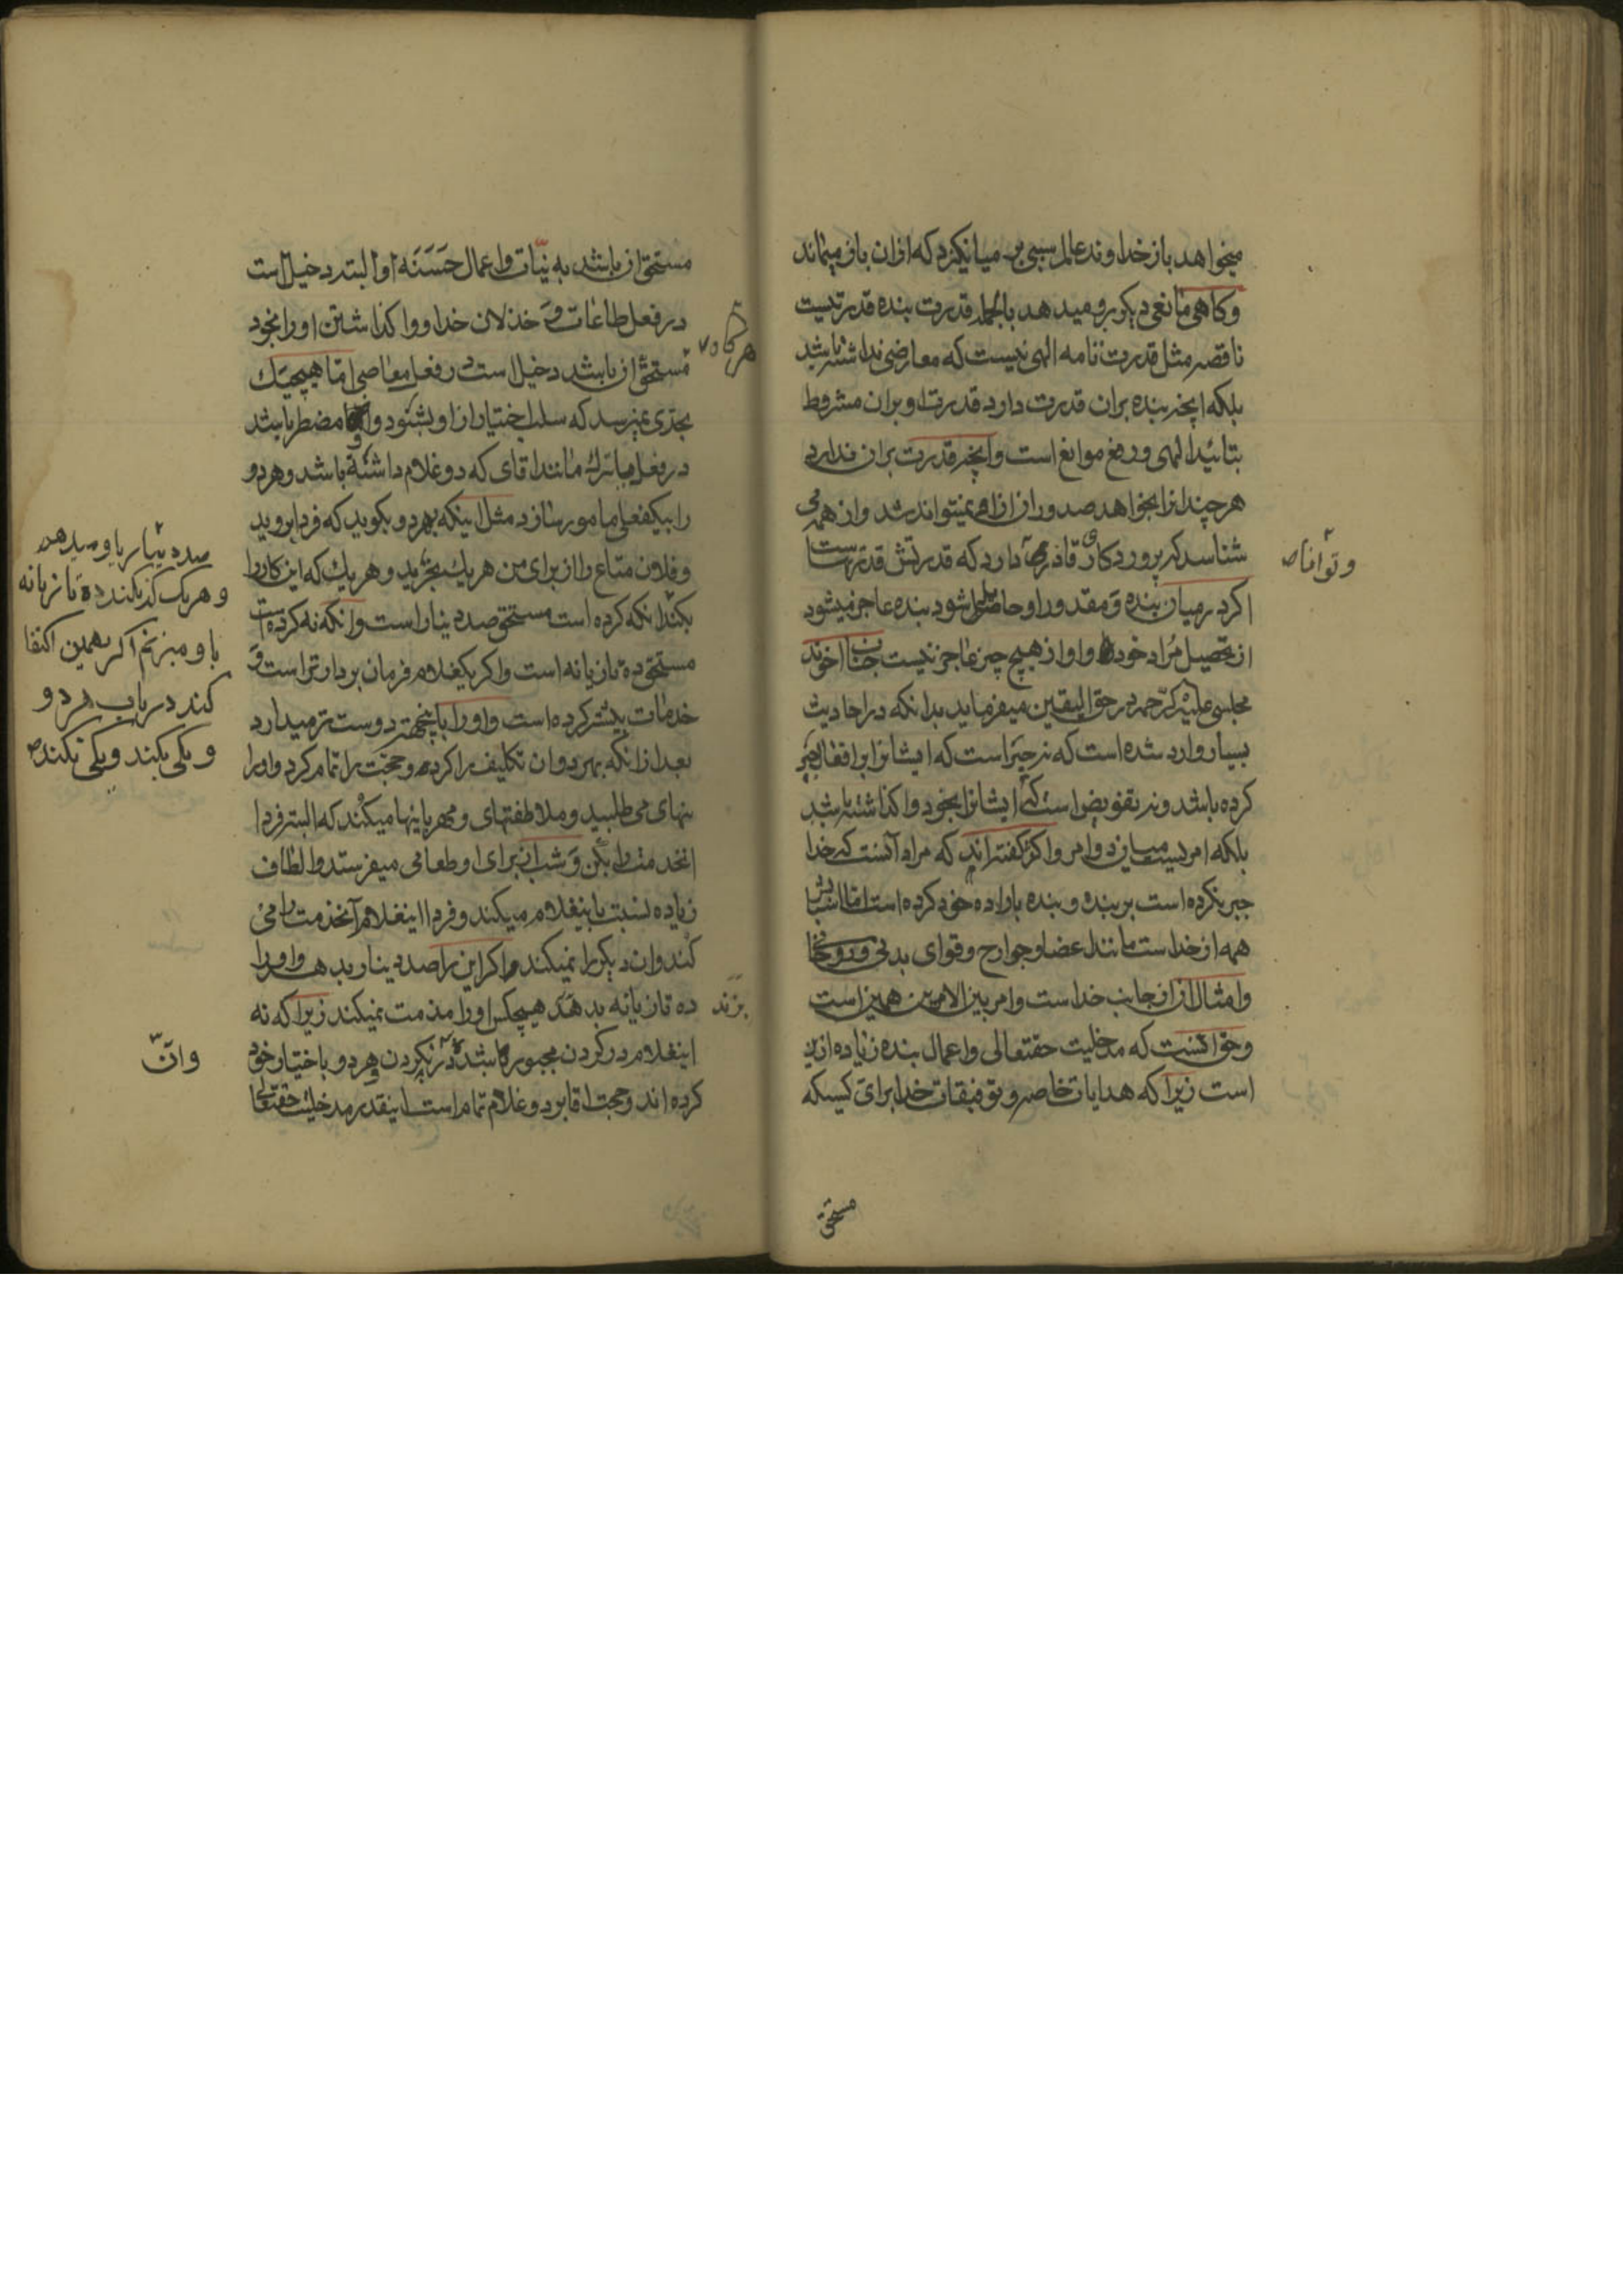 میخواهد باز خداوند عالم سببی بر میانکیزد که ازان باز میماند
وکاهی مانعی دیکر برو میدهد بالجمله قدرت بنده قدرتیست
ناقصه مثل قدرت تامه الهی نیست که معارضی نداشته باشد
بلکه انچه بنده بران قدرت دارد قدرت او بران مشروط
بتائید الهی و رفع موانع است وانچه قدرت بران ندارد
هرچند انرا بخواهد صدور ان ازاو نمیتواند شد وازهمه می
شناسد که پروردکار قادری دارد که قدرتش قدرتست
وتوانا
اکر در میان بنده و مقدور او حایلی شود بنده عاجز میشود
از تحصیل مراد خود و او از هیچ چیز عاجز نیست جناب اخوند
مجلسی علیه الرحمه در حق الیقین میفرماید بدانکه در احادیث
بسیار وارد شده است که نه جبر است که ایشانرا بر افعال جبر
کرده باشد ونه تفویض است که ایشانرا بخود واکذاشته باشد
بلکه امریست میان دو امر واکثر کفته اند که مراد آنست که خدا
جبر نکرده است بر بنده و بنده باراده خود کرده است اما اسبابش
همه از خداست مانند اعضا وجوارح وقوای بدنی وروحانی
وامثال ان از جانب خداست وامر بین الامرین همین است
وحق انست که مدخلیت حقتعالی در اعمال بنده زیاده ازین
است زیرا که هدایات خاصه وتوفیقات خدا برای کسیکه
مستحق
مستحق ان باشد به نیات و اعمال حَسَنَه او البته دخیل است
در فعل طاعات وَ خذلان خدا و واکذاشتن او را بخود
هرکاه
مستحق ان باشد دخیل است در فعل معاصی اما هیچیک
بحدی نمیرسد که سلب اختیار از او بشود و مضطر باشد
در فعل یا ترک مانند اقای که دو غلام داشته باشد وهر دو
را بیکفعلی مامور سازد مثل اینکه بهر دو بکوید که فردا بروید
وفلان متاع را از برای من هر یک بخرید وهر یک که این کار را
بکند
صد دینار باو میدهم
وهر یک که نکند ده تازیانه
باو میزنم اکر بهمین اکتفا
کند در باب هر دو
و یکی بکند و یکی نکند
انکه کرده است مستحق صد دینار است وانکه نه کرده است
مستحق ده تازیانه است واکر یکغلام فرمان بردارتر است وَ
خدمات بیشتر کرده است واو را باینجهت دوست تر میدارد
بعد از انکه بهر دو ان تکلیف را کرده وحجت را تمام کرد واو را
بنهای می طلبید وملاطفتهای ومهربانیها میکند که البته فردا
انخدمت را بکن وَ شب از برای او طعامی میفرستد والطاف
زیاده نسبت باینغلام میکند وفردا اینغلام آنخدمت را می
کند وان دیکر را نمیکند واکر این را صد دینار بدهد واو را
ده تازیانه
بزند
بدهد هیچکس او را مذمت نمیکند زیرا که نه
اینغلام در کردن مجبور باشد
وان
در نکردن هر دو باختیار خود
کرده اند وحجت اقا بر دو غلام تمام است اینقدر مدخلیت حقتعالی